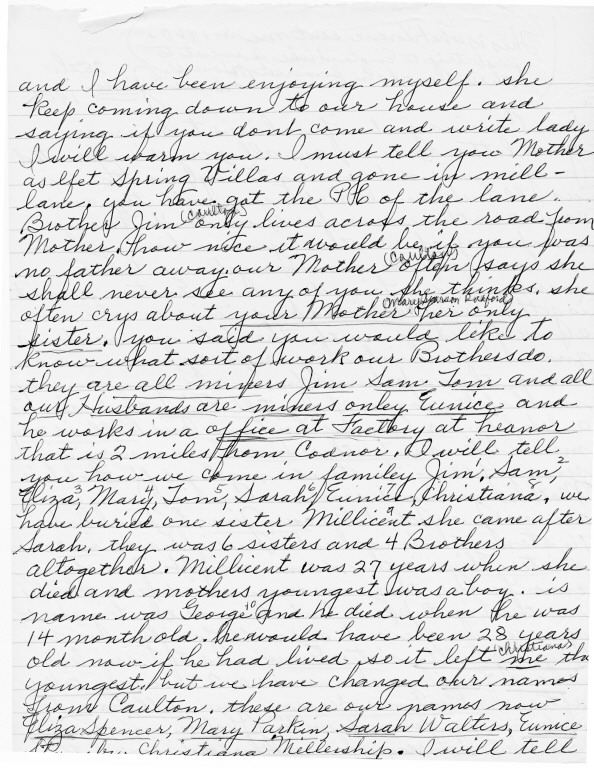 and I have been enjoying myself. she
keep coming down to our house and
saying if you dont come and write lady
I will warm you. I must tell you Mother
as left Spring Villas and gone in mill-
lane. you have got the P6 of the lane.
Brother Jim (Caulton) only lives across the road from
Mother. how nice it would be if you was
no father away. our Mother (Caulton) often says she
shall never see any of you she thinks. she
often crys about your Mother (Mary) her only
sister. you said you would like to
know what sort of work our Brothers do.
they are all miners Jim Sam Tom and all
our Husbands are miners onley Eunice and
he works in a office at Factory at heanor
that is 2 miles from Codnor. I will tell
you how we come in familey Jim, Sam,2
Eliza,3 Mary,4 Tom,5 Sarah,6 Eunice,7 Christiana,8 we
have buried one sister Millicent 9 she came after
Sarah. they was 6 sisters and 4 Brothers
altogether. Millicent was 27 years when she
died and mothers youngest was a boy. is
name was George 10 and he died when he was
14 month old. he would have been 28 years
old now if he had lived so it left me (Christiana) the
youngest. but we have changed our names
from Caulton. these are our names now
Eliza Spencer, Mary Parkin, Sarah Walters, Eunice
Christiana Millership. I will tell